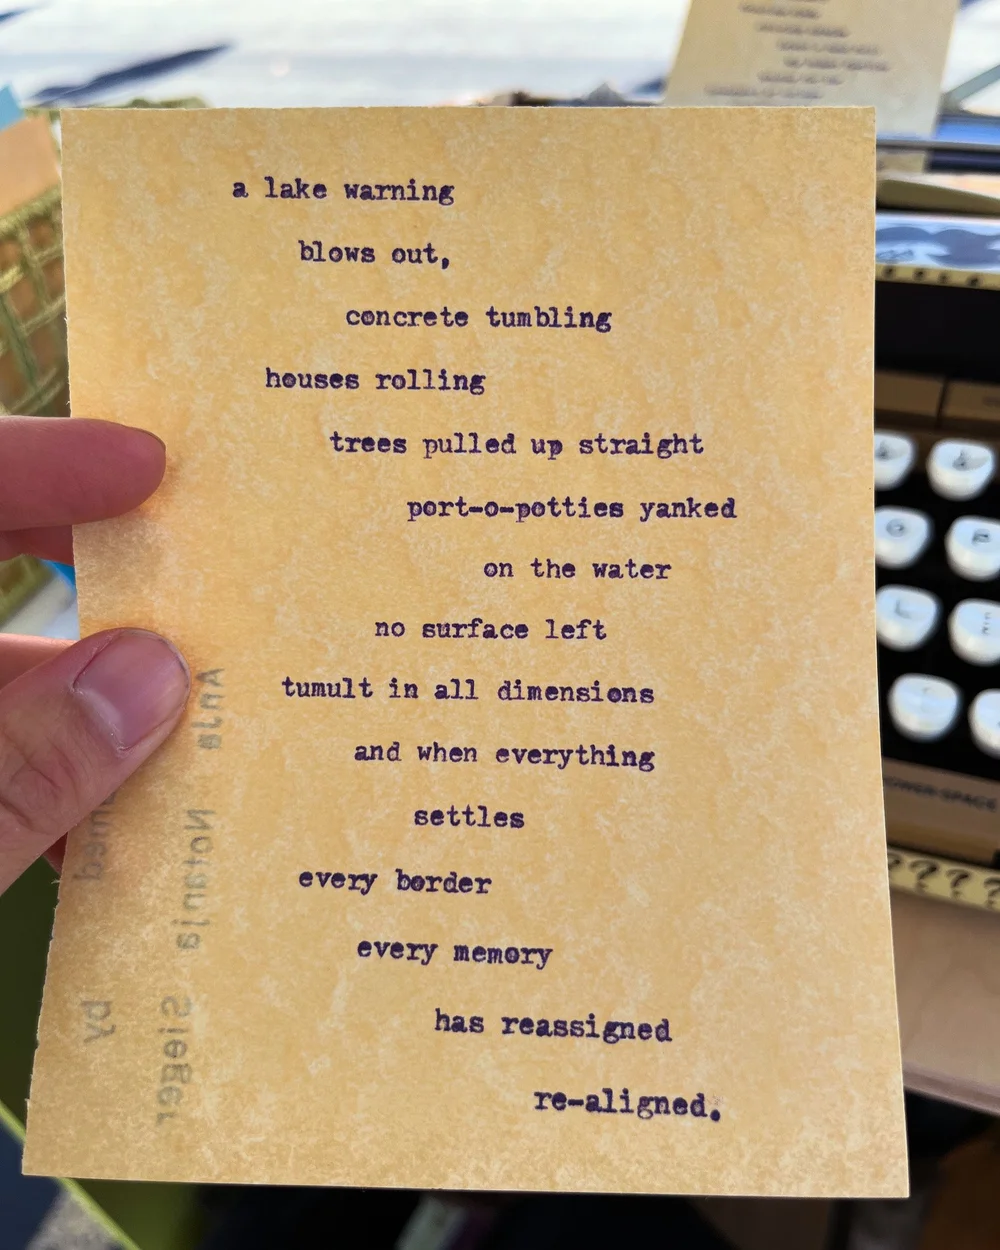 a lake warning
blows out,
concrete tumbling
houses rolling
trees pulled up straight
port-o-potties yanked
on the water
no surface left
tumult in all dimensions
and when everything
settles
every border
every memory
has reassigned
re-aligned.
by
Anja Notanja Sieger